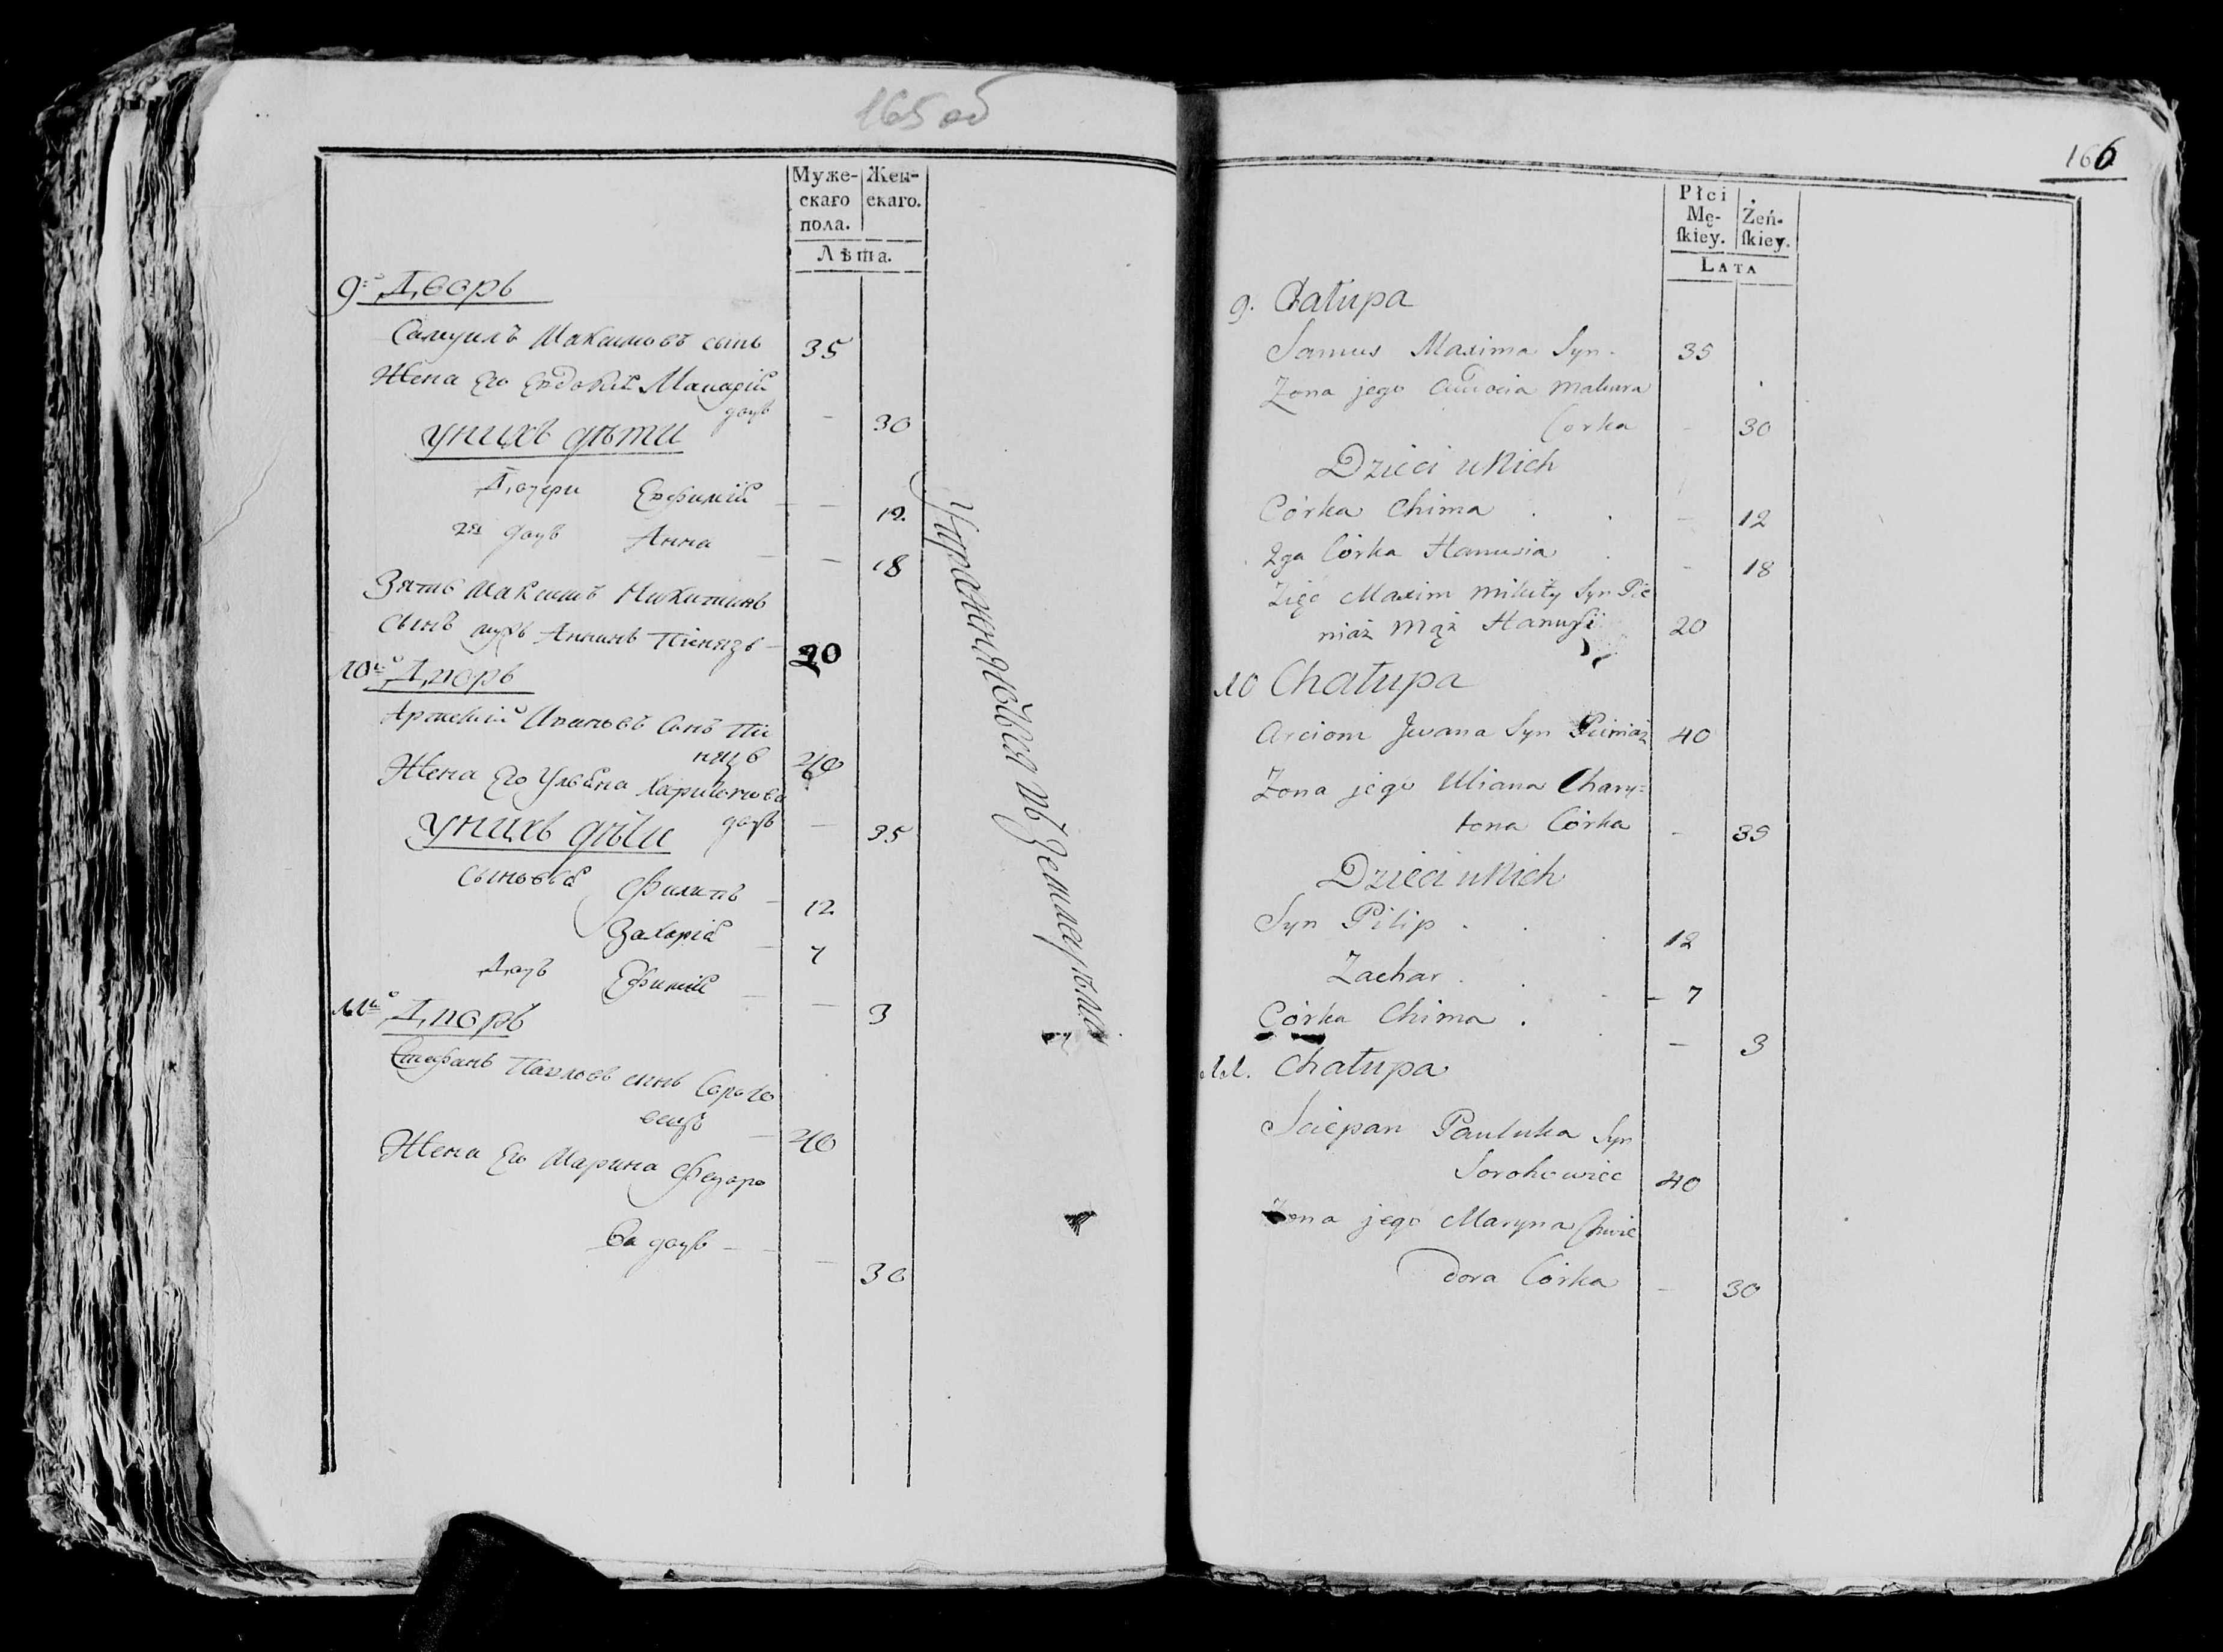 165 об
Муже-
скаго
пола.
Жен-
скаго.
Лѣта.
9: Дворъ
Самуилъ Максимовъ сынъ 35
Жена Его Евдокиѣ Макарiѣ
дочь — 30
у нихъ дѣти
Дочери Евфимiѣ — — 12
2я дочь Анна — — 18
Зять Максимъ Никитинъ
сынъ мужъ Аннинъ Пiнязь — 20
10й Дворъ
Артемiй Ивановъ сынъ Пi
нязь 40
Жена Его Ульяна Харитонова
дочь — 35
у нихъ дѣти
сыновья Филипъ — 12
Захарiй — 7
Дочь Ефимiѣ — — 3
11й Дворъ
Стефанъ Павловъ сынъ Сорохо
вецъ — 40
Жена Его Марина Федоро
ва дочь — — 30
166
Płci
Mę-
ſkiey.
Żeń-
ſkiey.
LATA
9. Chałupa
Samus Maxima Syn. 35
Zona jego Audocia Makara
Corka - 30
Dzieci u Nich
Córka Chima . . - 12
2ga Córka Hanusia . - 18
Zięć Maxim Mikity Syn Pie
niaż Mąż Hanusi 20
10 Chałupa
Arciom Jwana Syn Pieniaż 40
Zona jego Uliana Chary=
tona Córka - 35
Dzieci u Nich
Syn Pilip . . . 12
Zachar . . . - 7
Córka Chima . . - 3
11. Chałupa
Sciepan Pauluka Syn
Sorohowiec 40
Zona jego Maryna Chwie
dora Córka - 30